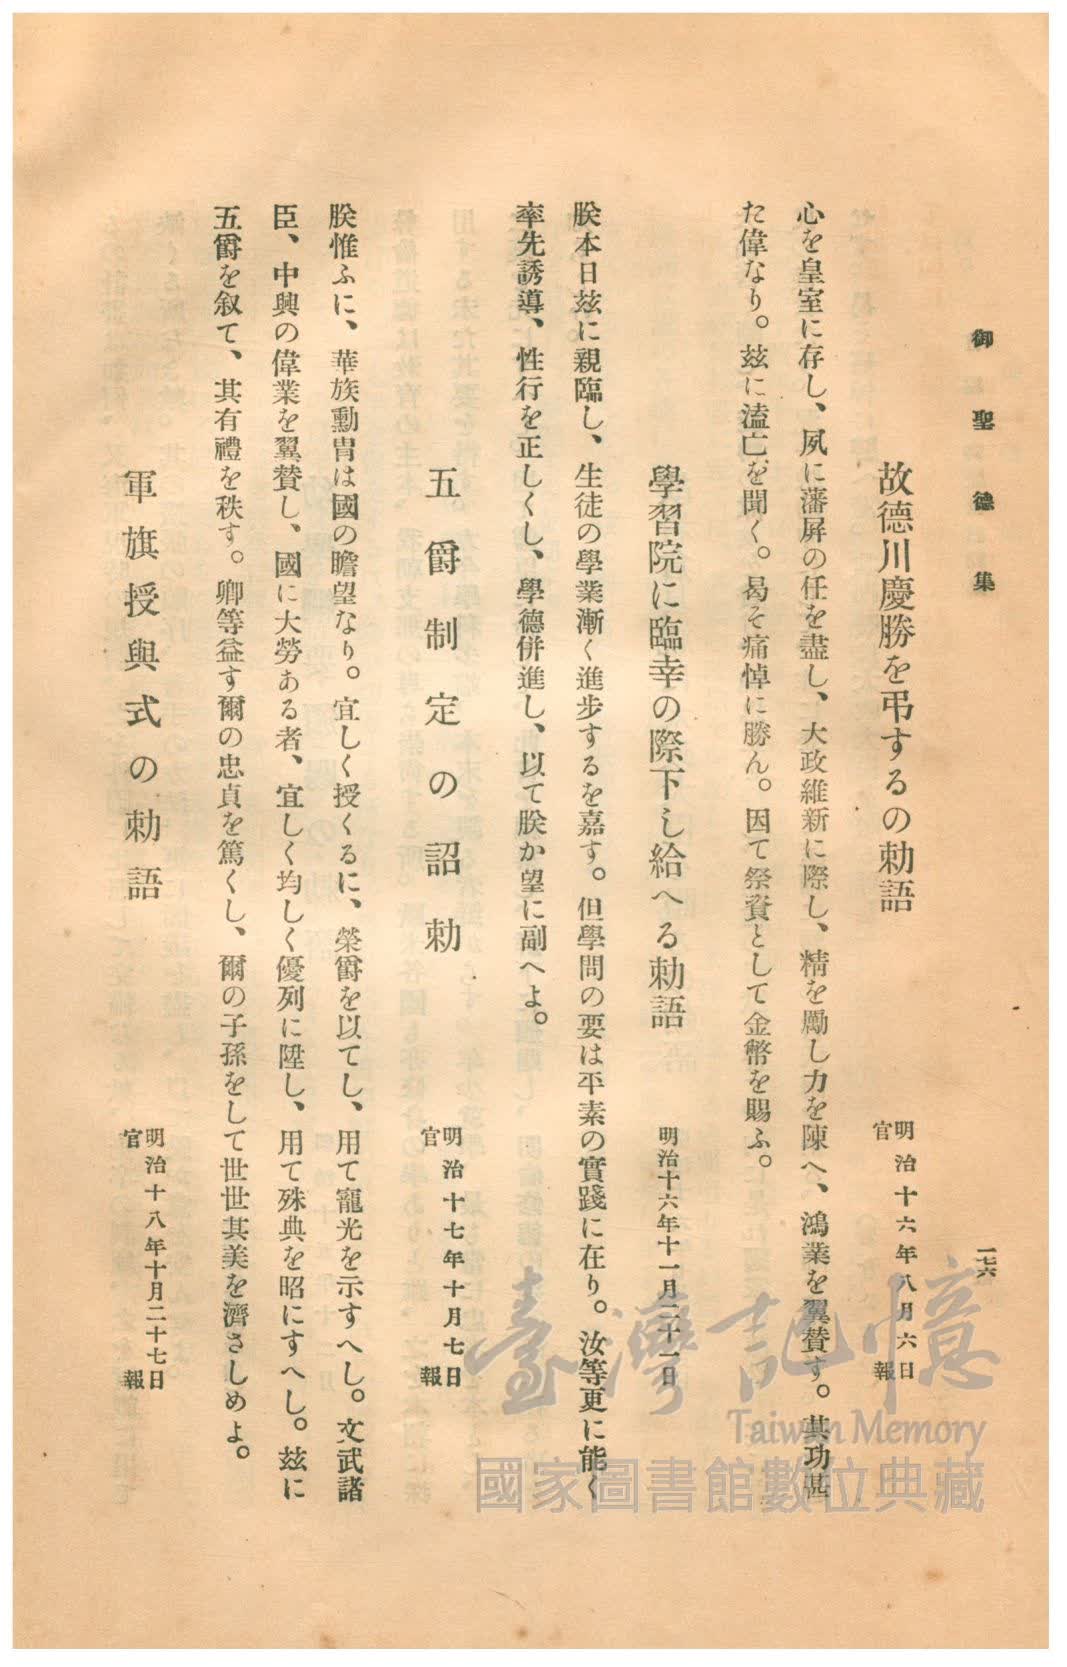 御聖德集
一七六
故德川慶勝を弔するの勅語
明治十六年八月六日
官報
心を皇室に存し、夙に藩屏の任を盡し、大政維新に際し、精を勵し力を陳へ、鴻業を翼賛す。其功甚
た偉なり。玆に溘亡を聞く。曷そ痛悼に勝ん。因て祭資として金幣を賜ふ。
學習院に臨幸の際下し給へる勅語
明治十六年十一月二十一日
朕本日玆に親臨し、生徒の學業漸く進步するを嘉す。但學問の要は平素の實踐に在り。汝等更に能く
率先誘導、性行を正しくし、學德併進し、以て朕か望に副へよ。
五爵制定の詔勅
明治十七年十月七日
官報
朕惟ふに、華族勳冑は國の瞻望なり。宜しく授くるに、榮爵を以てし、用て寵光を示すへし。文武諸
臣、中興の偉業を翼賛し、國に大勞ある者、宜しく均しく優列に陞し、用て殊典を昭にすへし。玆に
五爵を叙て、其有禮を秩す。卿等益す爾の忠貞を篤くし、爾の子孫をして世世其美を濟さしめよ。
軍旗授與式の勅語
明治十八年十月二十七日
官報
臺灣記憶
Taiwan Memory
國家圖書館數位典藏